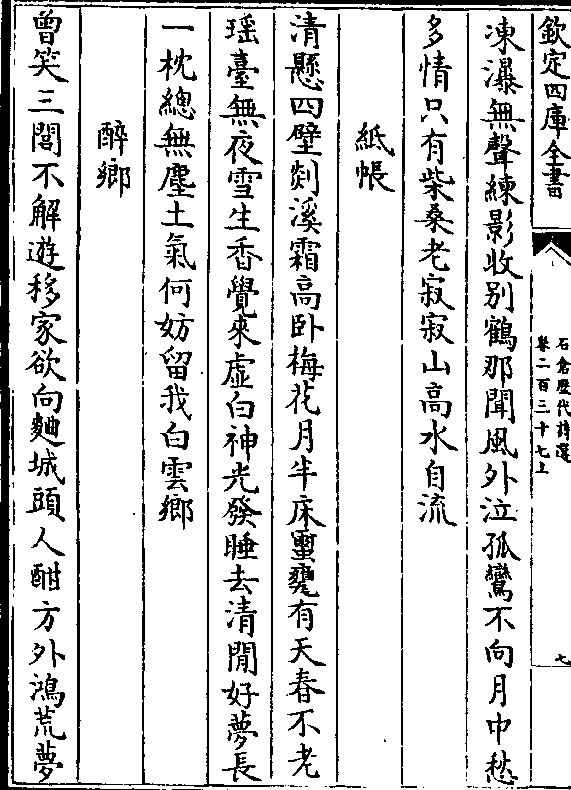 欽定四庫全書
石倉歷代詩選
卷二百三十七上
七
凍瀑無聲練影收别鶴那聞風外泣孤鸞不向月中愁
多情只有柴桑老寂寂山高水自流
紙帳
清懸四壁剡溪霜高卧梅花月半床䘉甕有天春不老
瑶臺無夜雪生香覺來虛白神光發睡去清閒好夢長
一枕總無塵土氣何妨留我白雲鄉
醉鄉
曾笑三閭不解遊移家欲向麯城頭人酣方外鴻荒夢